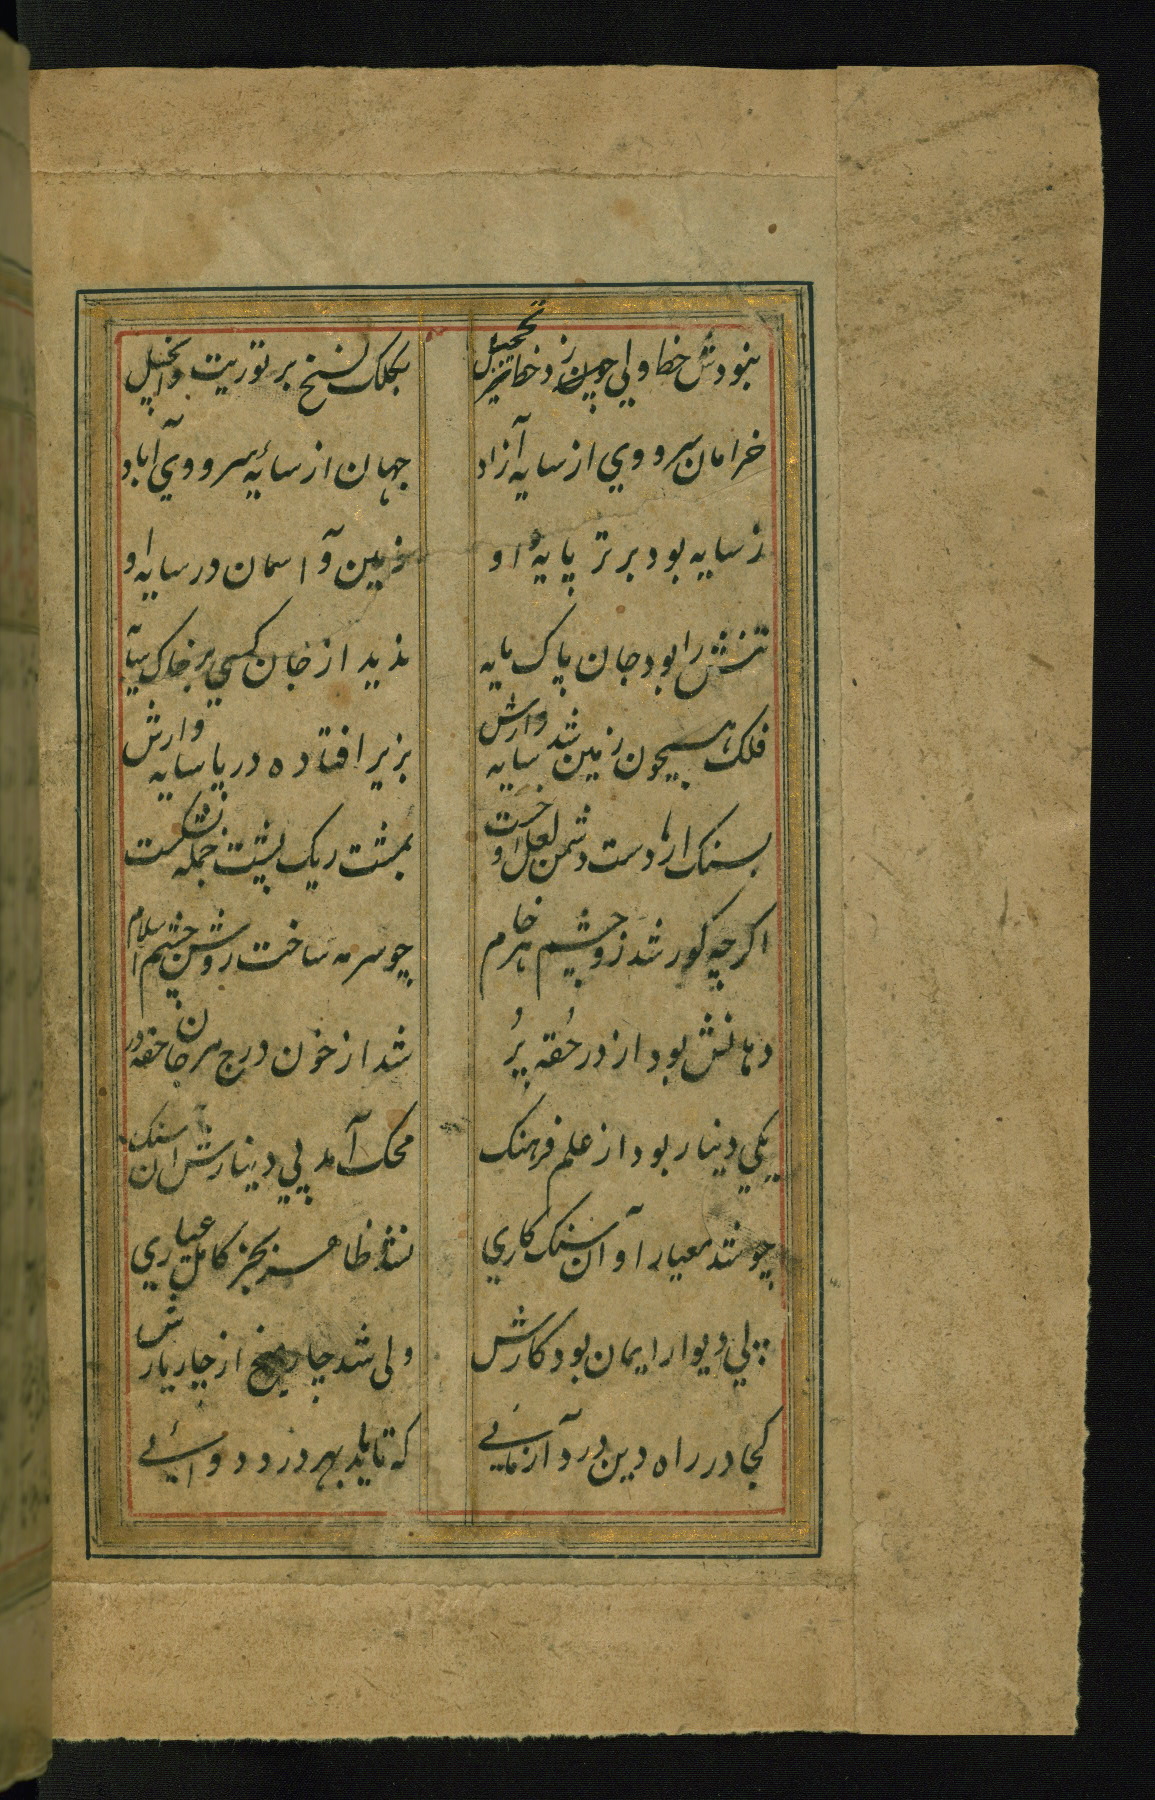 بنودش خطا ولی چون زد خطا تعجیل
بکلک نسخ بر توریت وانجیل
خرامان سرو وی از سایه آزاد
جهان از سایهٔ سرو وی آباد
ز سایه بود برتر پایهٔ او
زمین و آسمان در سایه او
تنش را بود جان پاک مایه
ندید از جان کسی بر خاک سایه
فلک همچون زمین شد سایه وارش
بزیر افتاده در پا سایه وارش
بسنک ار ها دست دشمن لعل او خست
بمشت ریک پشت جمله شکست
اکر چه کور شد زو چشم هر خام
چو سرمه ساخت روشن چشم اسلام
دهانش بود از در حُقه پُر
شد از خون درج مرجان حقه در
یکی دینار بود از علم فرهنک
محک آمد پی دینارش ان سنک
چو شد معیار او آن سنک کاری
نشد ظاهر بجز کامل عیاری
پی دیوار ایمان بود کارش
ولی شد چار میخ از چار یارش
کجا در راه دین درد آزمایی
که تا یابد بهر درد دوایی